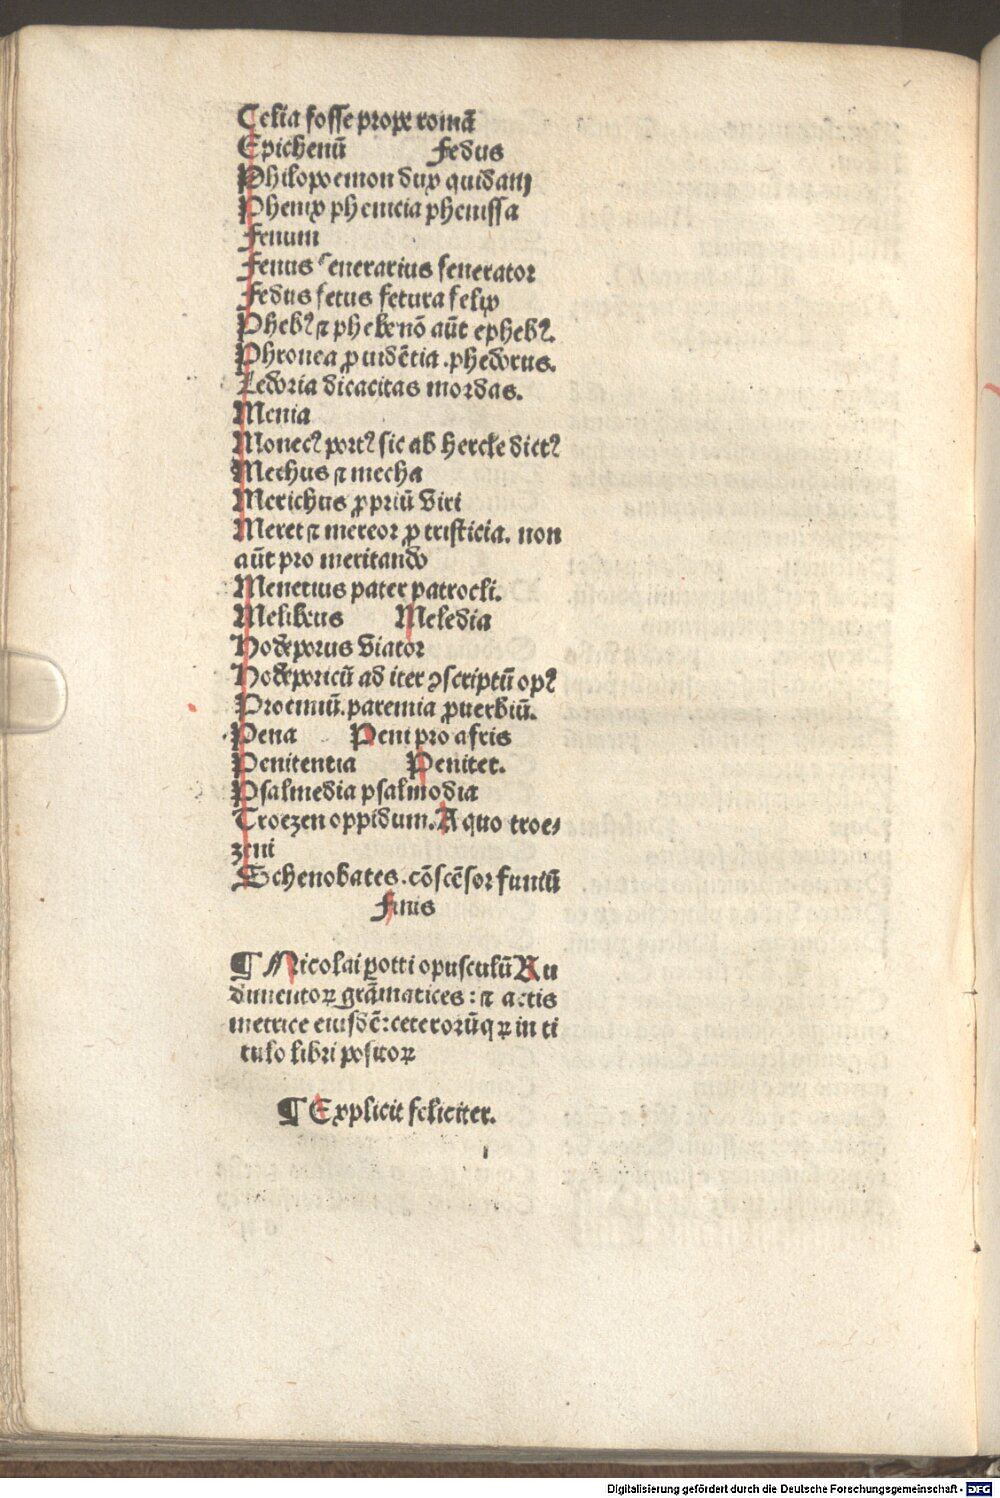 Celia fosse prope romā
Epichenū Fedus
Philopoemon dux quidam
Phenix phenicia phenissa
Fenum
Fenus fenerarius fenerator
Fedus fetus fetura felix
Pheb⁹ ⁊ phebe nō aūt epheb⁹.
Phronea ꝓuidētia .phedorus.
Ledoria dicacitas mordas.
Menia
Monec⁹ port⁹ sic ab hercle dict⁹
Mechus ⁊ mecha
Merichus ꝓpriū viri
Meret ⁊ mereor ꝓ tristicia. non
aūt pro meritando
Menetius pater patrocli.
Melibeus Meledia
Hodeporus viator
Hodeporicū ad iter ꝯscriptū op⁹
Proemiū. paremia ꝓuerbiū.
Pena Peni pro afris
Penitentia Penitet.
Psalmedia psalmodia
Troezen oppidum. A quo troe⸗
zeni
Schenobates. cōscēsor funiū
Finis
¶ Nicolai potti opusculū Ru
dimentoꝝ grāmatices: ⁊ actis
metrice eiusdē: ceterorūqꝫ in ti
tulo libri positoꝝ
¶ Explicit feliciter.
Digitalisierung gefördert durch die Deutsche Forschungsgemeinschaft - DFG